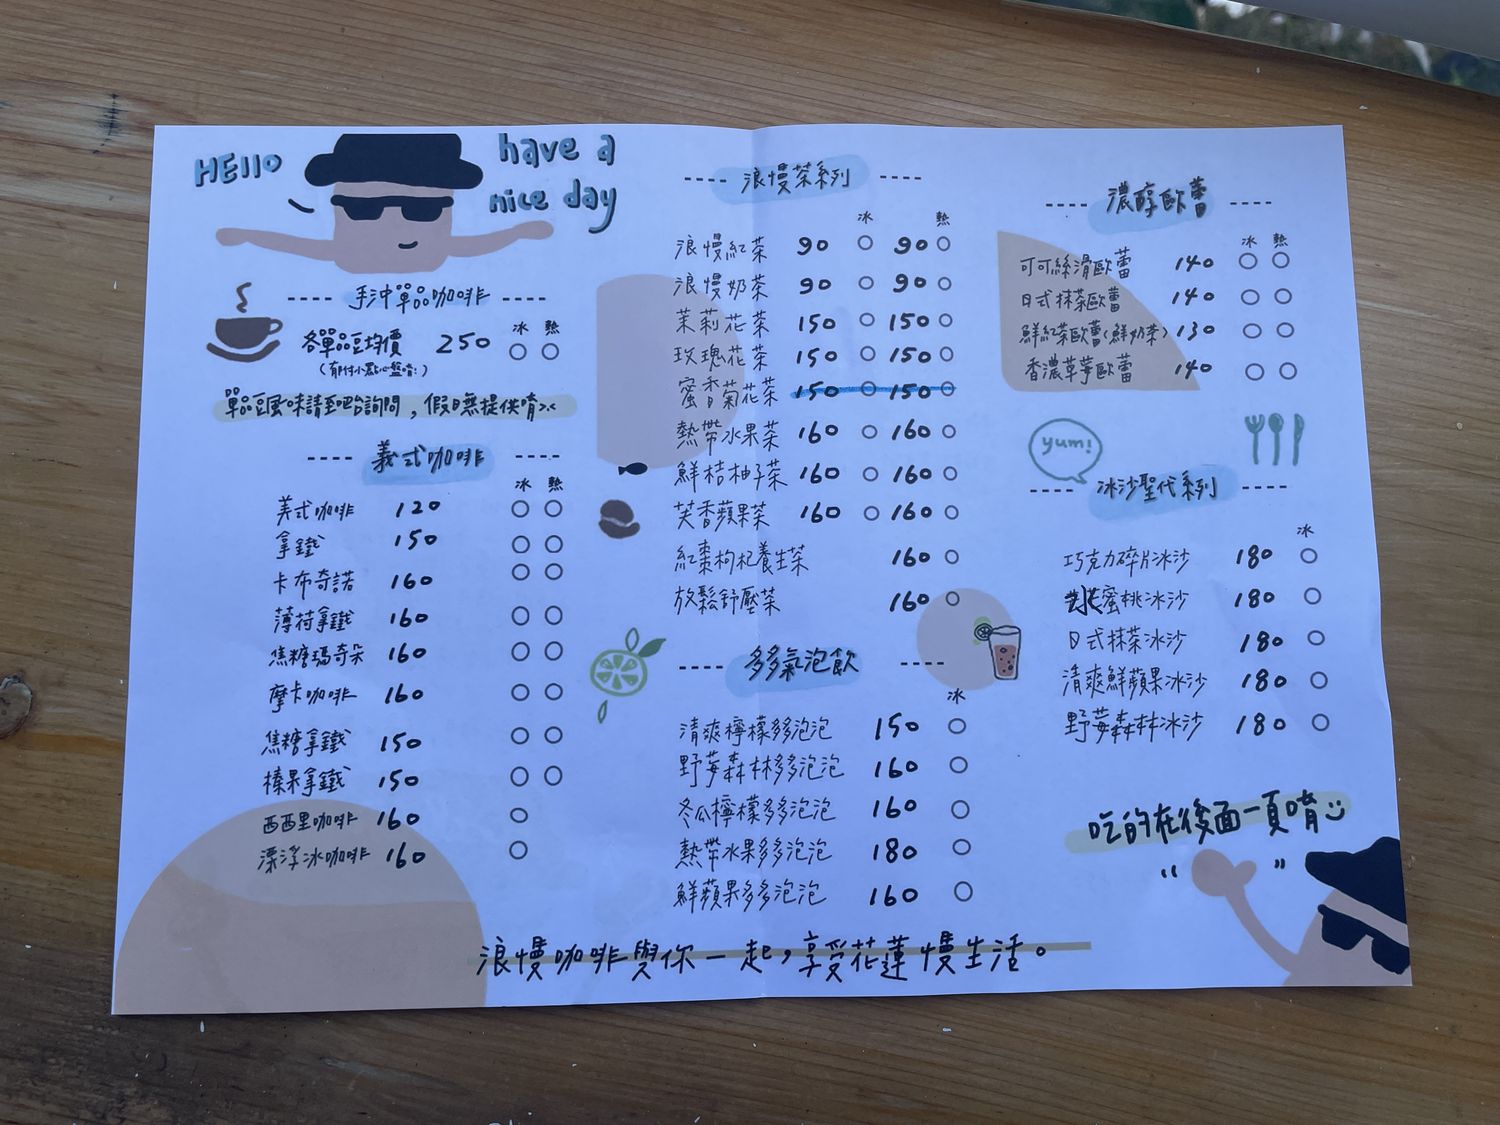 HEllo
have a
nice day
---- 手沖單品咖啡 ----
冰 熱
各單品豆均價 250 ○ ○
(都付小點心盤唷!)
單品豆風味請至吧台詢問，假日無提供唷>.<
---- 義式咖啡 ----
冰 熱
美式咖啡 120 ○ ○
拿鐵 150 ○ ○
卡布奇諾 160 ○ ○
薄荷拿鐵 160 ○ ○
焦糖瑪奇朵 160 ○ ○
摩卡咖啡 160 ○ ○
焦糖拿鐵 150 ○ ○
榛果拿鐵 150 ○ ○
西西里咖啡 160 ○
漂浮冰咖啡 160 ○
---- 浪慢茶系列 ----
冰 熱
浪慢紅茶 90 ○ 90 ○
浪慢奶茶 90 ○ 90 ○
茉莉花茶 150 ○ 150 ○
玫瑰花茶 150 ○ 150 ○
蜜香菊花茶 150 ○ 150 ○
熱帶水果茶 160 ○ 160 ○
鮮桔柚子茶 160 ○ 160 ○
芙香蘋果茶 160 ○ 160 ○
紅棗枸杞養生茶 160 ○
放鬆舒壓茶 160 ○
---- 多多氣泡飲 ----
冰
清爽檸檬多泡泡 150 ○
野莓森林多多泡泡 160 ○
冬瓜檸檬多多泡泡 160 ○
熱帶水果多多泡泡 180 ○
鮮蘋果多多泡泡 160 ○
---- 濃醇歐蕾 ----
冰 熱
可可絲滑歐蕾 140 ○ ○
日式抹茶歐蕾 140 ○ ○
鮮紅茶歐蕾(鮮奶茶) 130 ○ ○
香濃草莓歐蕾 140 ○ ○
yum!
---- 冰沙聖代系列 ----
冰
巧克力碎片冰沙 180 ○
蜜桃冰沙 180 ○
日式抹茶冰沙 180 ○
清爽鮮蘋果冰沙 180 ○
野莓森林冰沙 180 ○
吃的在後面一頁唷
浪慢咖啡與你一起，享受花蓮慢生活。